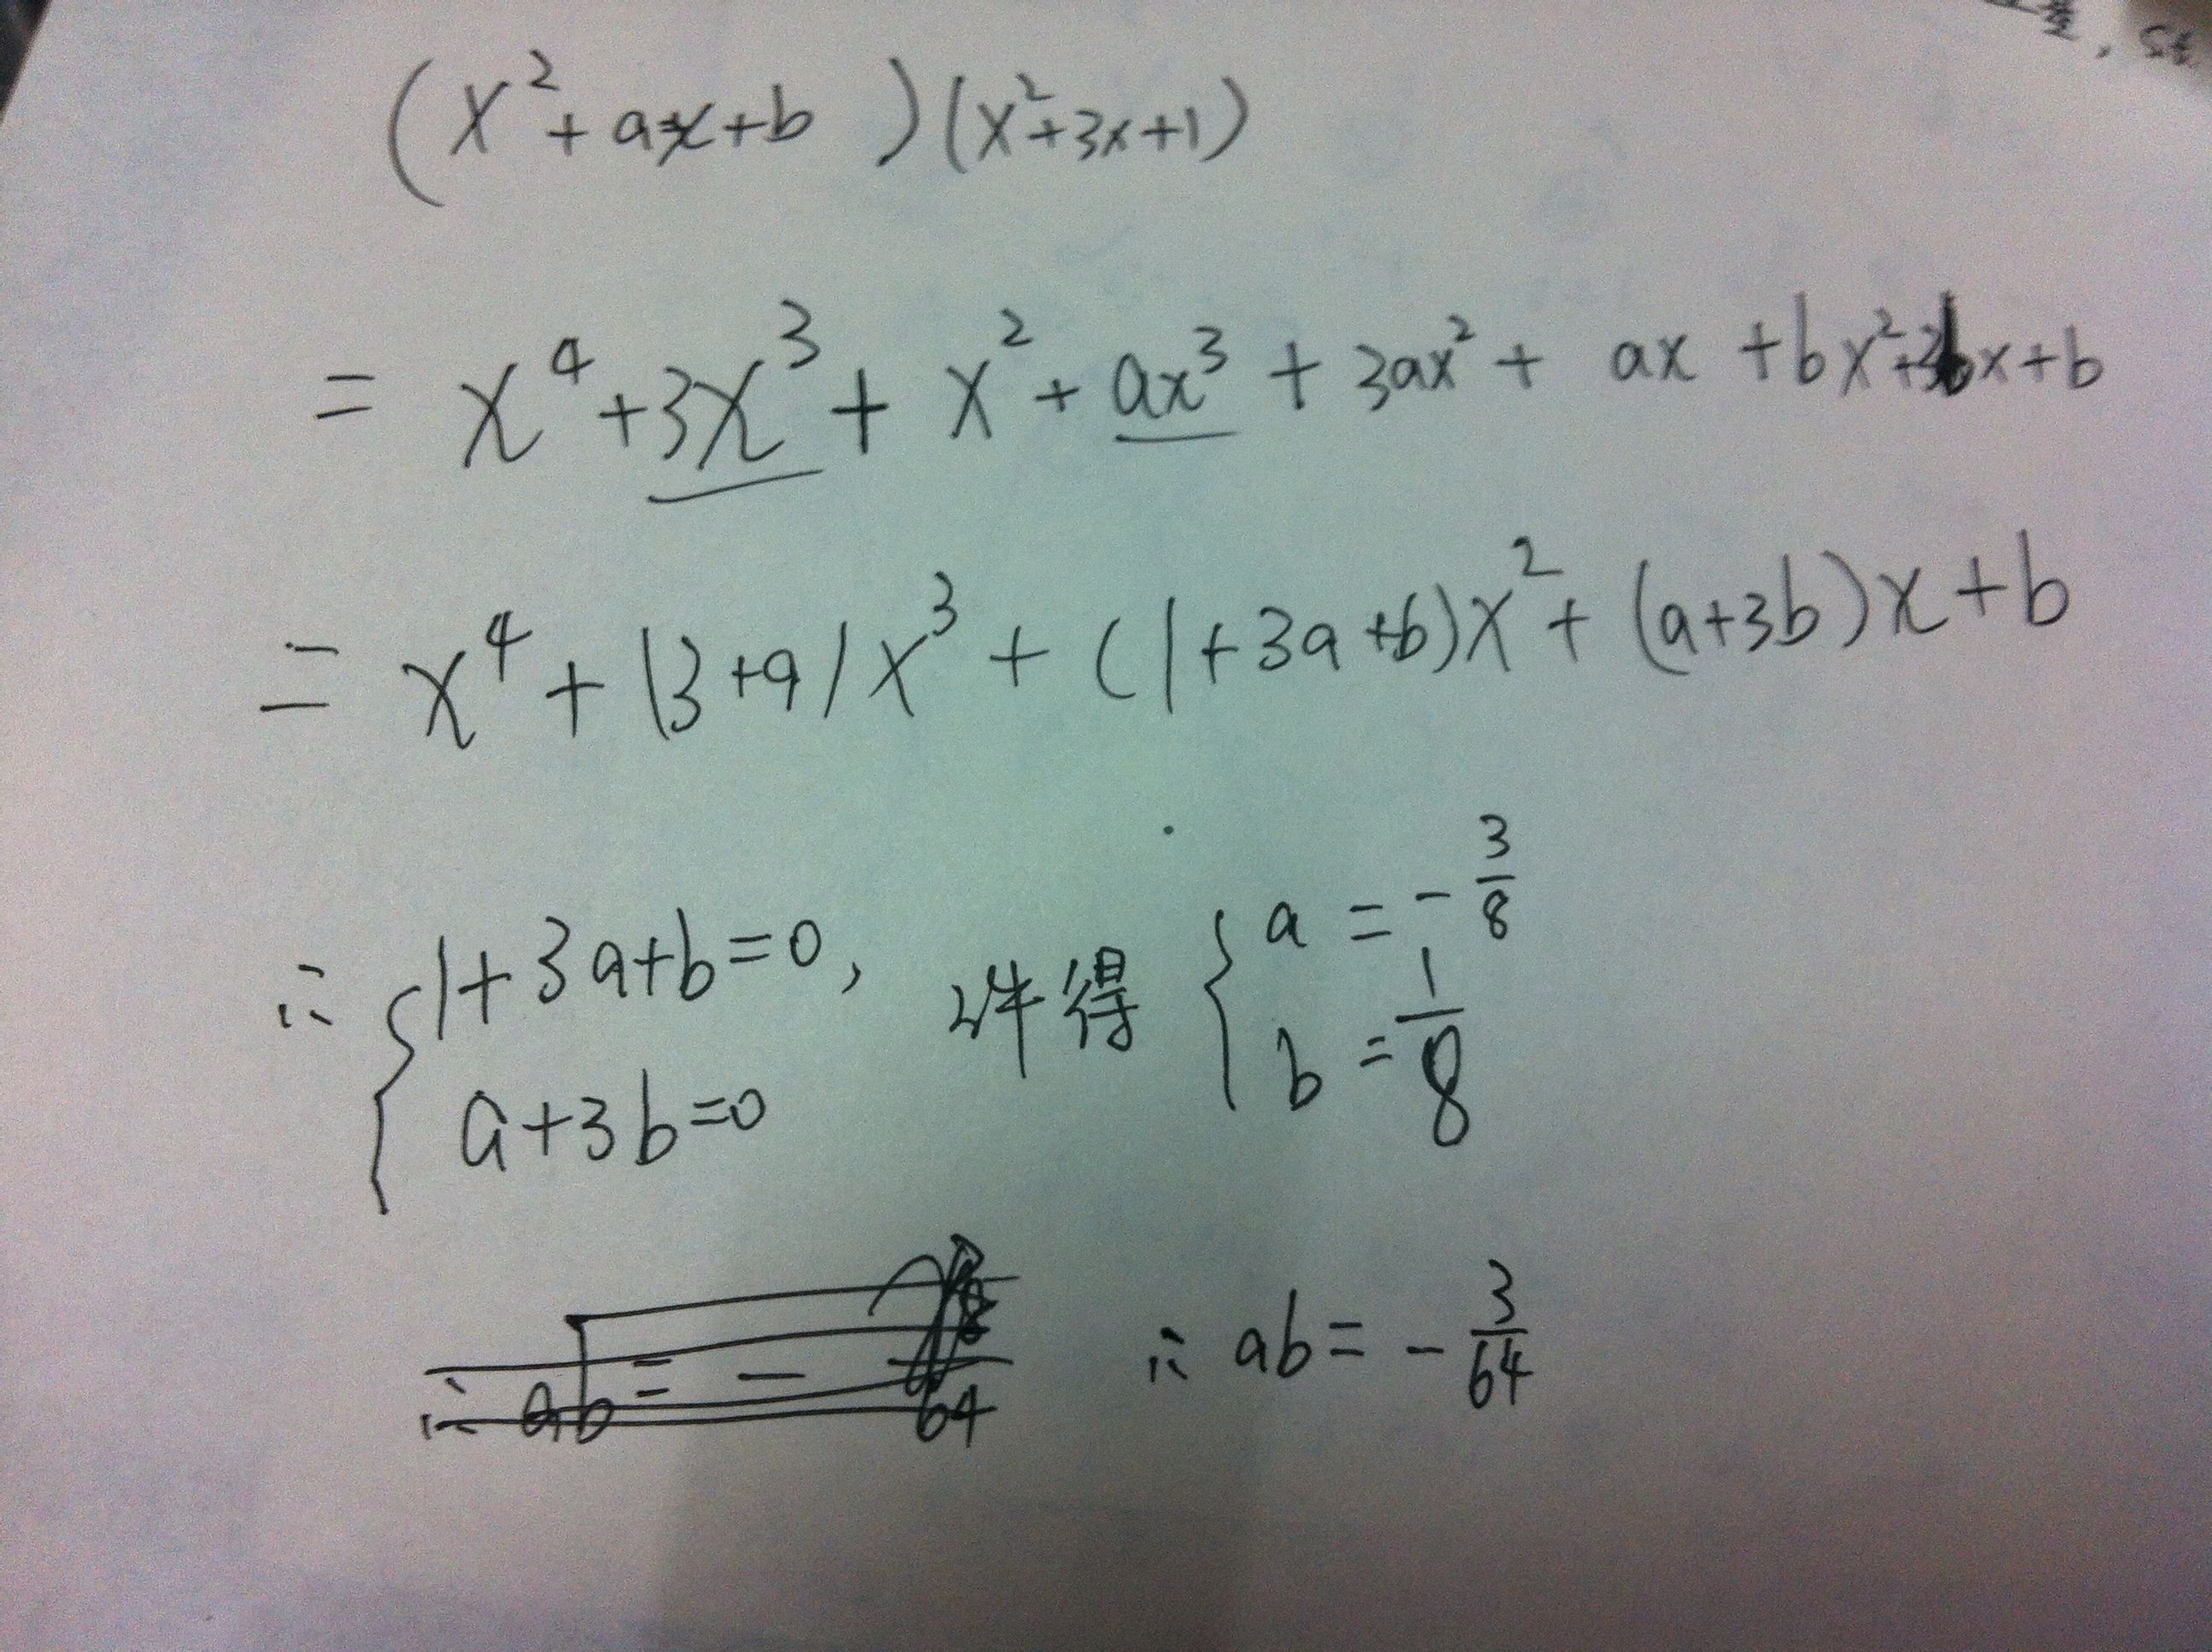 (x²+ax+b)(x²+3x+1)
= x⁴+3x³+x²+ax³+3ax²+ax+bx²+3bx+b
= x⁴+(3+a)x³+(1+3a+b)x²+(a+3b)x+b
∴ {1+3a+b=0, 解得 {a=-3/8
a+3b=0 b=1/8
∴ ab=-3/64